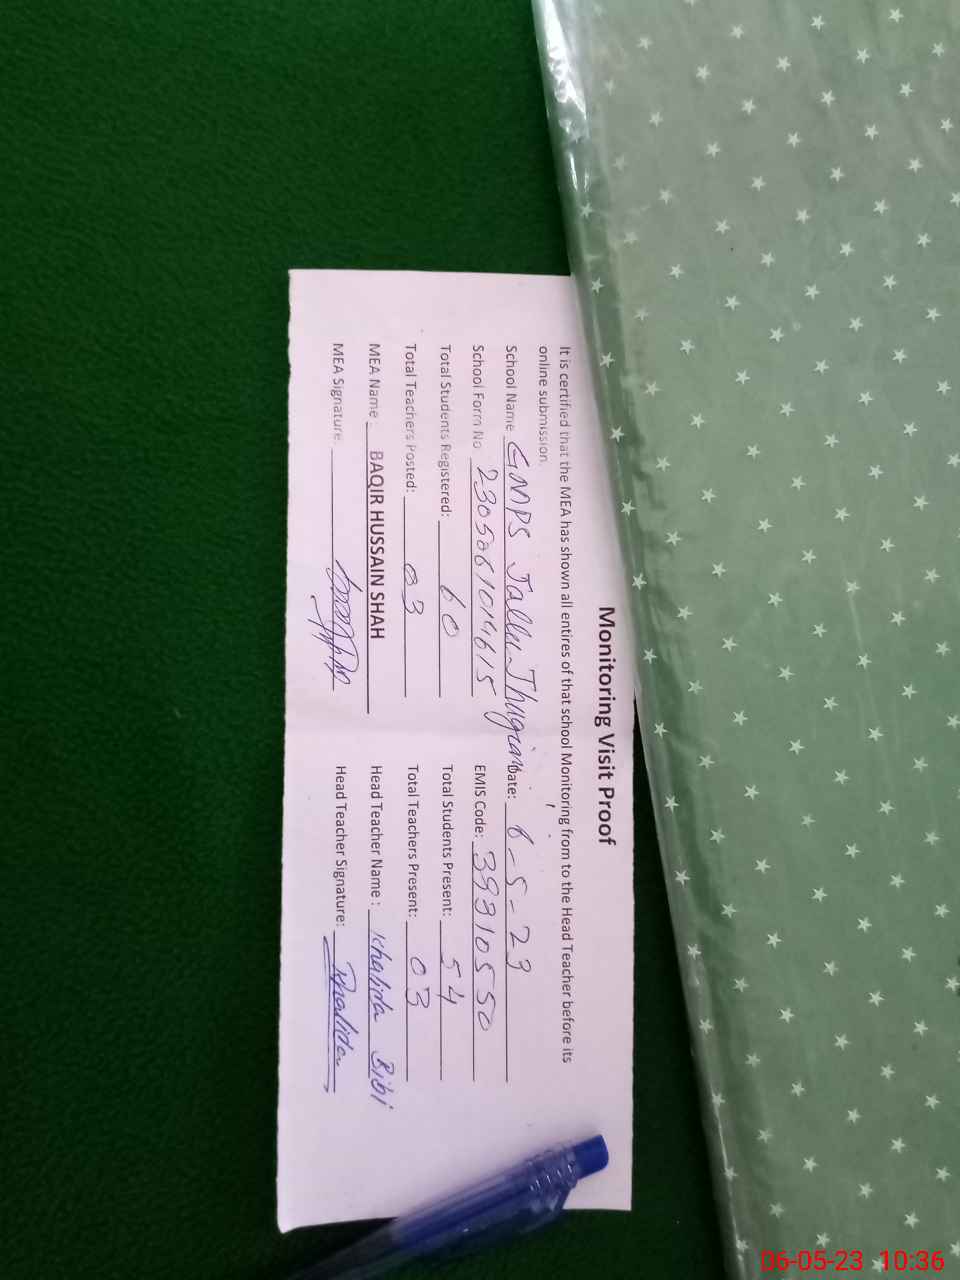 Monitoring Visit Proof
It is certified that the MEA has shown all entires of that school Monitoring from to the Head Teacher before its
online submission.
School Name GMPS Jallu Jhugian Date: 6-5-23
School Form No 2305061014615 EMIS Code: 39310550
Total Students Registered: 60 Total Students Present: 54
Total Teachers Posted: 03 Total Teachers Present: 03
MEA Name : BAQIR HUSSAIN SHAH Head Teacher Name : Khalida Bibi
MEA Signature: Head Teacher Signature: Khalida
06-05-23 10:36